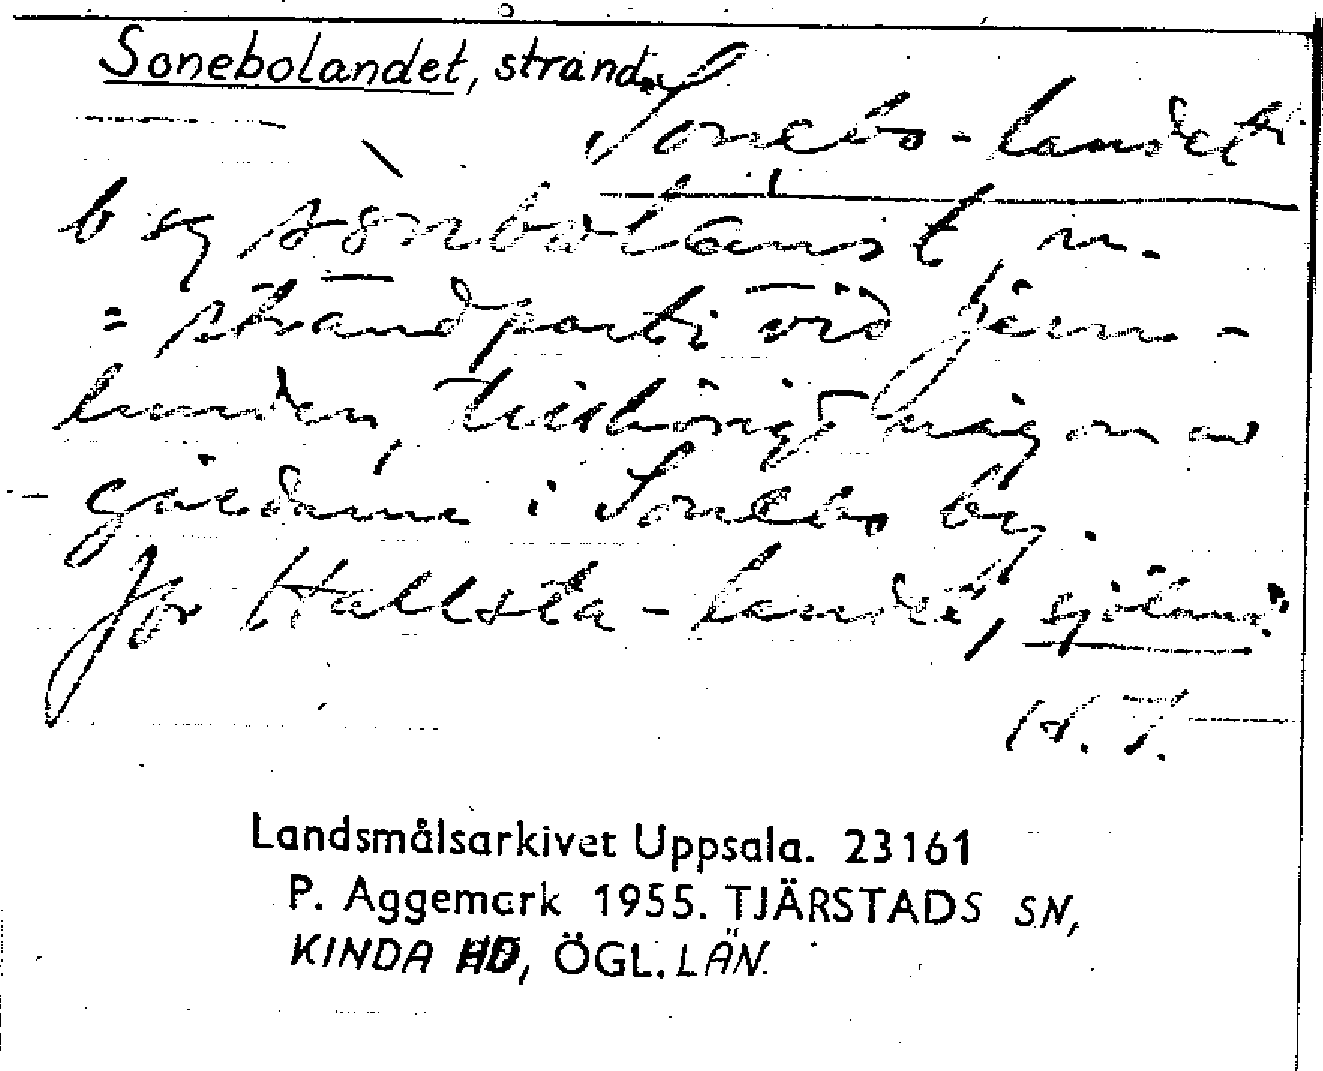 Sonebolandet, strand.
Sonebo-landet
b sg sònbolànst, n.
= strandparti vid Järn-
lunden, tillhörigt någon av
gårdarna i Sonebo by.
Jfr Hallsta-landet, sjöland.
H. T.
Landsmålsarkivet Uppsala. 23161
P. Aggemark 1955. TJÄRSTADS SN,
KINDA HD, ÖGL. LÄN.